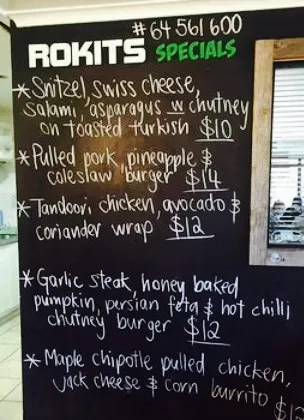 #64 561 600
ROKITS SPECIALS
* Snitzel, swiss cheese,
salami, asparagus w chutney
on toasted turkish $10
* Pulled pork, pineapple &
coleslaw burger $14
* Tandoori chicken, avocado &
coriander wrap $12
* Garlic steak, honey baked
pumpkin, persian feta & hot chilli
chutney burger $12
* Maple chipotle pulled chicken,
jack cheese & corn burrito